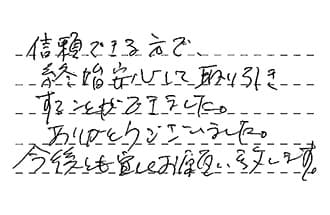 信頼できる方で、
終始安心して取り引き
することができました。
ありがとうございました。
今後とも宜しくお願い致します。